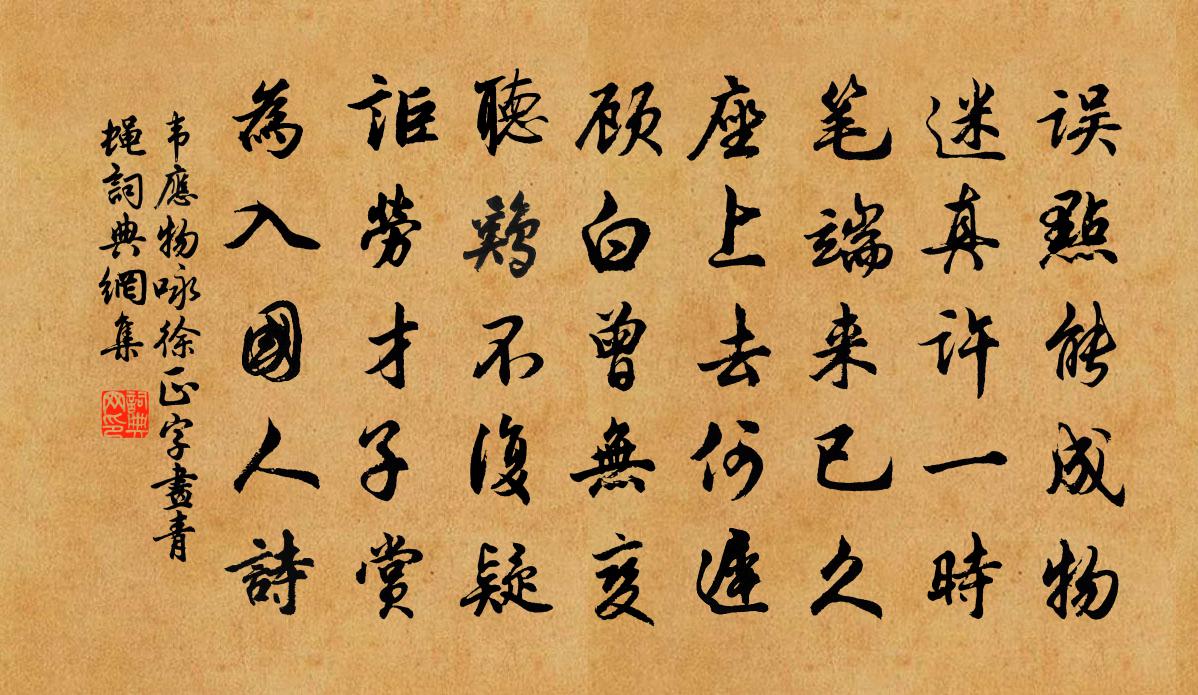 误點能成物
迷真许一時
笔端来已久
座上去何遲
顾白曾無变
聽鷄不復疑
詎勞才子赏
為入國人詩
韦應物咏徐正字畫青
蝇詞典網集
詞典
网印